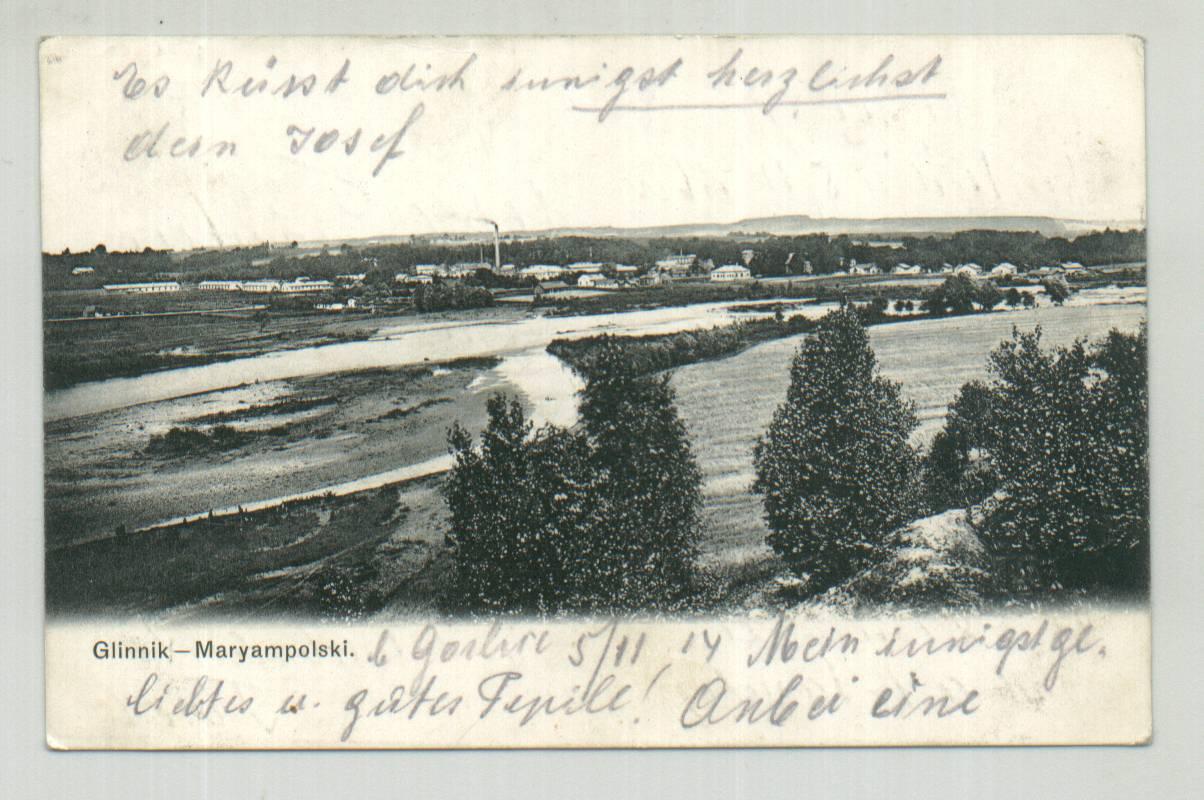 Es Küsst dich innigst herzlichst
dein Josef
Glinnik–Maryampolski.
b Gorlice 5/11 14 Mein innigstge-
liebtes u. gutes Pepile! Anbei eine